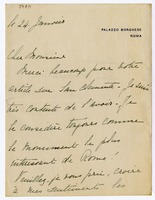 PALAZZO BORGHESE
ROMA
le 24 Janvier
Cher Monsieur
Merci beaucoup pour votre
article sur San Clemente. Je suis
très content de l'avoir. Je
le considère toujours comme
le monument le plus
intéressant de Rome.
Veuillez je vous prie, croire
à mes sentiments les